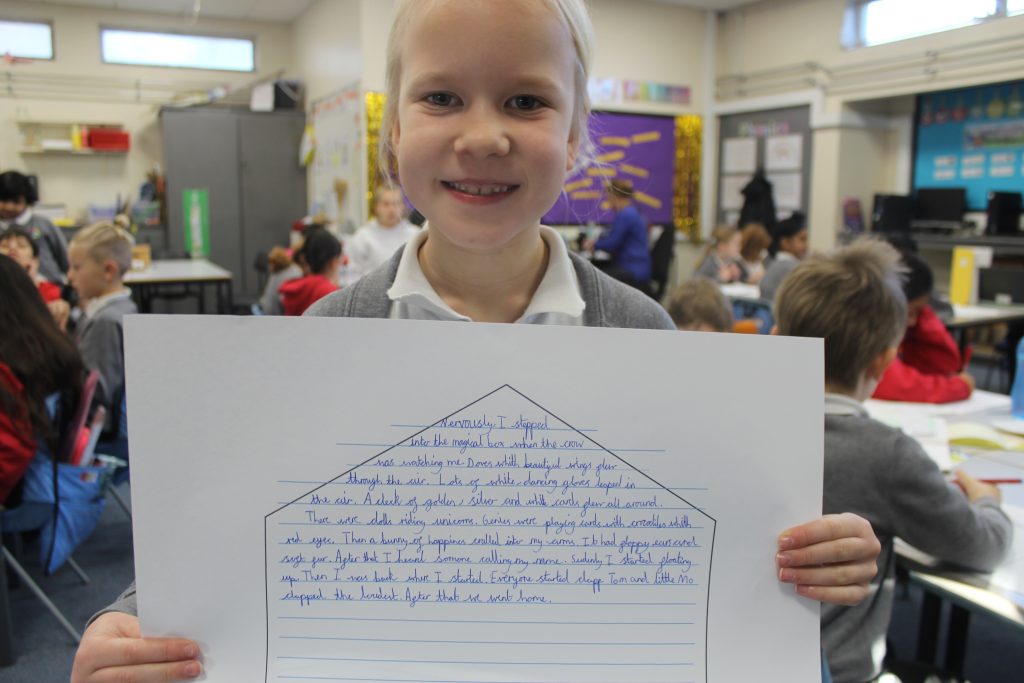 Nervously I stepped
into the magical box when the crow
was watching me. Doves whith beautiful wings flew
through the air. Lots of white dancing gloves leaped in
the air. A deck of golden, silver and white cards flew all around.
There were dolls riding unicorns. Genies were playing cards with crocodiles whith
red eyes. Then a bunny of happines rolled into my arms. It had floppy ears and
soft fur. After that I heard somone calling my name. Sudenly I started floating
up. Then I was back where I started. Everyone started clapp. Tom and Little Mo
clapped the loudest. After that we went home.